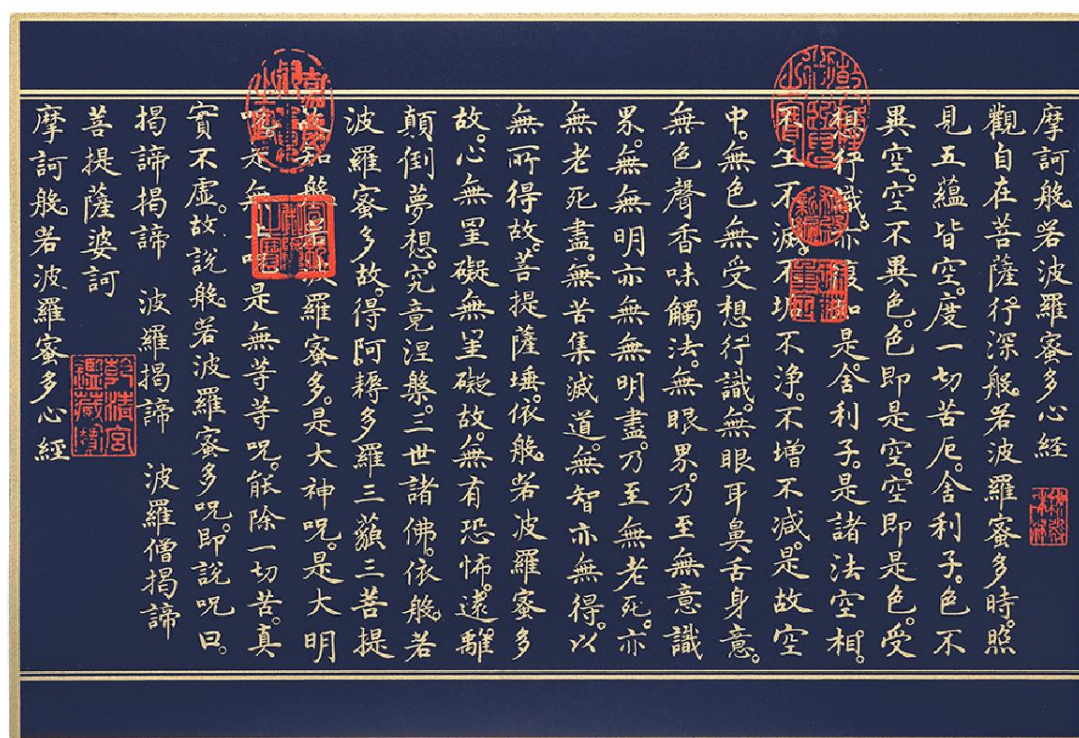 摩訶般。若波羅蜜多心經
觀自在菩薩。行深般。若波羅蜜多時。照
見五蘊皆空。度一切苦厄。舍利子。色不
異空。空不異色。色即是空。空即是色。受
想行識。亦復如是。舍利子。是諸法空相。
不生不滅。不垢不淨。不增不減。是故空
中。無色無受想。行識。無眼耳鼻舌身意。
無色聲香味觸法。無眼界。乃至無意識
界。無無明亦無無明盡。乃至無老死。亦
無老死盡。無苦集滅道。無智亦無得。以
無所得故。菩提薩埵。依般。若波羅蜜多
故。心無罣礙無罣礙故。無有恐怖。遠離
顛倒夢想。究竟涅槃。三世諸佛。依般。若
波羅蜜多故。得阿。耨多羅三藐三菩提
故知般若波羅蜜多。是大神呪。是大明
呪是無上呪是無等等呪。能除一切苦。真
實不虛。故說般。若波羅蜜多呪。即說呪曰。
揭諦揭諦 波羅揭諦 波羅僧揭諦
菩提薩婆訶
乾清宮鑑藏寶
摩訶般。若波羅蜜多心經